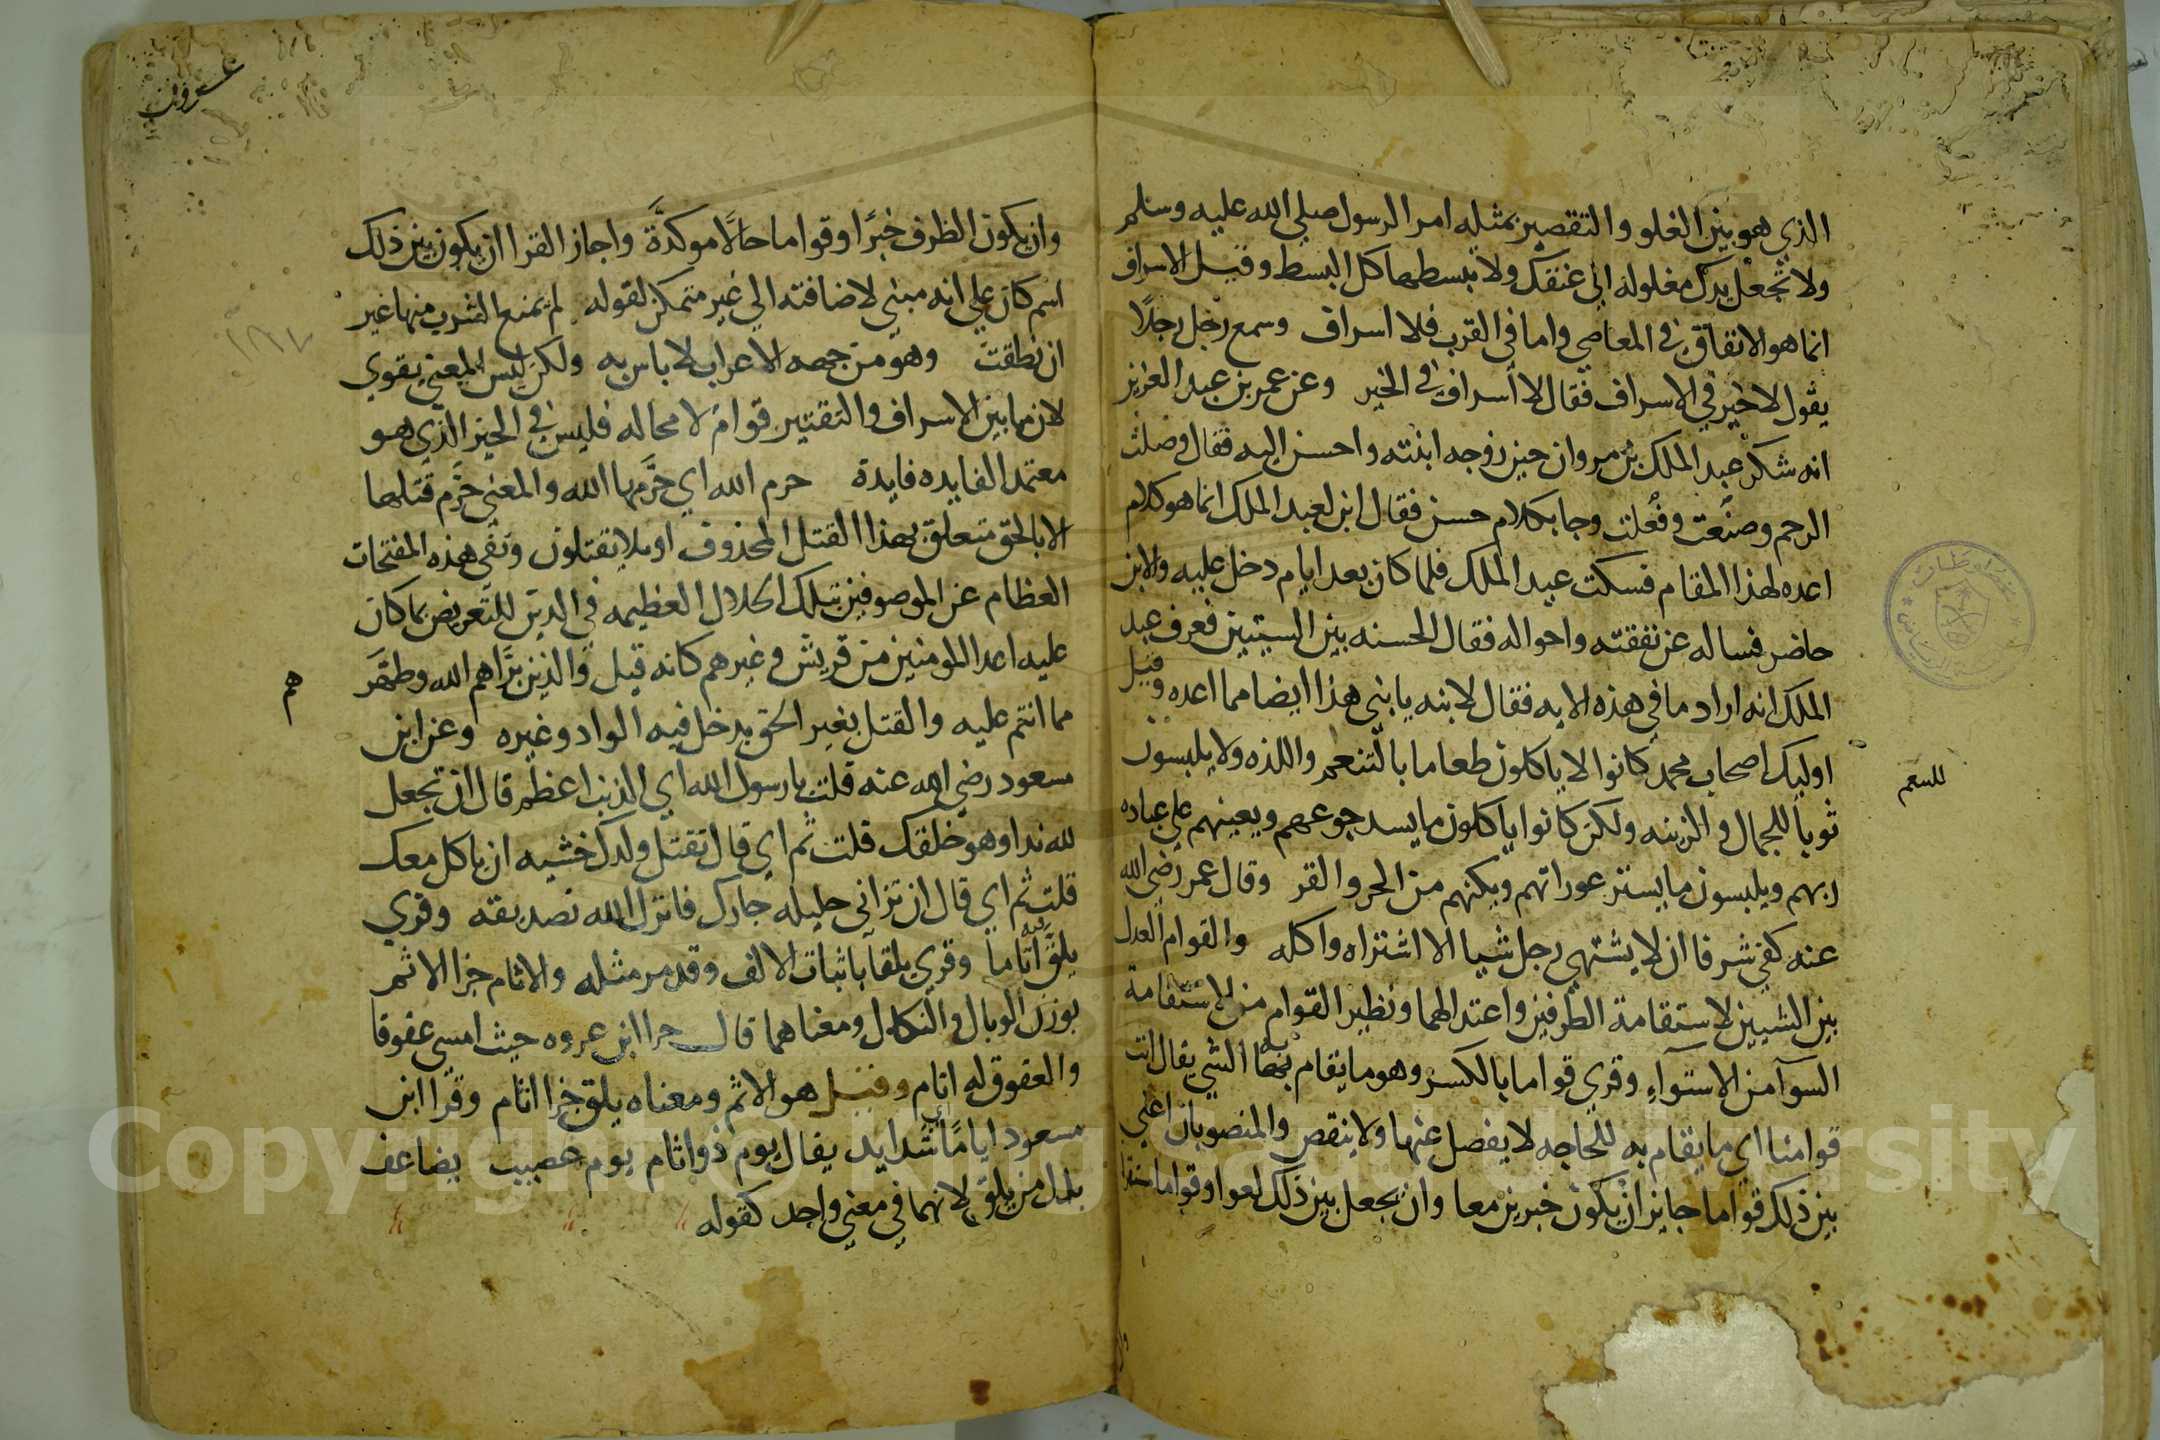 الذي هو بين الغلو والتقصير بمثله امر الرسول صلى الله عليه وسلم
ولا تجعل يدك مغلولة الي عنقك ولا تبسطها كل البسط وقيل الاسراف
انما هو الانفاق في المعاصي واما في القرب فلا اسراف وسمع رجل رجلًا
يقول لا خير في الاسراف فقال لا اسراف في الخير وعن عمر بن عبد العزيز
انه شكر عبد الملك بن مروان حين زوجه ابنته واحسن اليه فقال وصلت
الرحم وصنعت وفعلت وجا بكلام حسن فقال ابن لعبد الملك انما هو كلام
اعده لهذا المقام فسكت عبد الملك فلما كان بعد ايام دخل عليه والابن
حاضر فساله عن نفقته واحواله فقال الحسنه بين السيتين فعرف عبد
الملك انه اراد ما في هذه الايه فقال لابنه يا بني هذا ايضا مما اعده وقيل
اوليك اصحاب محمد كانوا لا ياكلون طعاما بالتنعم واللذه ولا يلبسون
للتنعم
ثوبا للجمال والزينه ولكن كانوا ياكلون ما يسد جوعهم ويعينهم علي عباده
ربهم ويلبسون ما يستر عوراتهم ويكنهم من الحر والقر وقال عمر رضي الله
عنه كفي شرفا ان لا يشتهي رجل شيا الا اشتراه واكله والقوام العدل
بين الشيين لاستقامة الطرفين واعتدالهما ونظير القوام من الاستقامة
السوآ من الاستوآء وقري قواما بالكسر وهو ما يقام به الشي يقال انت
قوامنا اي ما يقام به للحاجه لا يفصل عنها ولا ينقص والمنصوبان اعني
بين ذلك قواما جايز ان يكون خبرين معا وان يجعل بين ذلك لغوا وقواما مستقرا
وان يكون الظرف خبرًا وقواما حالًا موكدةً واجاز الفرا ان يكون بين ذلك
اسم كان علي انه مبني لاضافته الي غير متمكن لقوله لم يمنع الشرب منها غير
ان نطقت وهو من جهه الاعراب لا باس به ولكن ليس المعني بقوي
لان ما بين الاسراف والتقتير قوام لا محاله فليس في الخبر الذي هو
معتمد الفايده فايدة حرم الله اي حرَّمها الله والمعني حرَّم قتلها
الا بالحق متعلق بهذا القتل المحذوف او بلا يقتلون ونفي هذه المقبحات
العظام عن الموصوفين بتلك الخلال العظيمه في الدين للتعريض بما كان
عليه اعدا المومنين من قريش وغيرهم كانه قيل والذين برَّاهم الله وطهَّر
هم
مما انتم عليه والقتل بغير الحق يدخل فيه الواد وغيره وعن ابن
مسعود رضي الله عنه قلت يا رسول الله اي الذنب اعظم قال ان تجعل
لله ندا وهو خلقك قلت ثم اي قال تقتل ولدك خشيه ان ياكل معك
قلت ثم اي قال ان تزاني حليله جارك فانزل الله تصديقه وقري
يلقَّ اثاما وقري يلقآ باثبات الالف وقد مر مثله والاثام جزا الاثم
بوزن الوبال والنكال ومعناهما قال جزا ابن عروه حيث امسي عقوقا
والعقوق له اثام وقيل هو الاثم ومعناه يلق جزا اثام وقرا ابن
مسعود ايامًا اي شدايد يقال يوم ذو ايام يوم عصيب يضاعف
بدل من يلق لانهما في معني واحد كقوله
Copyright © King Saud University